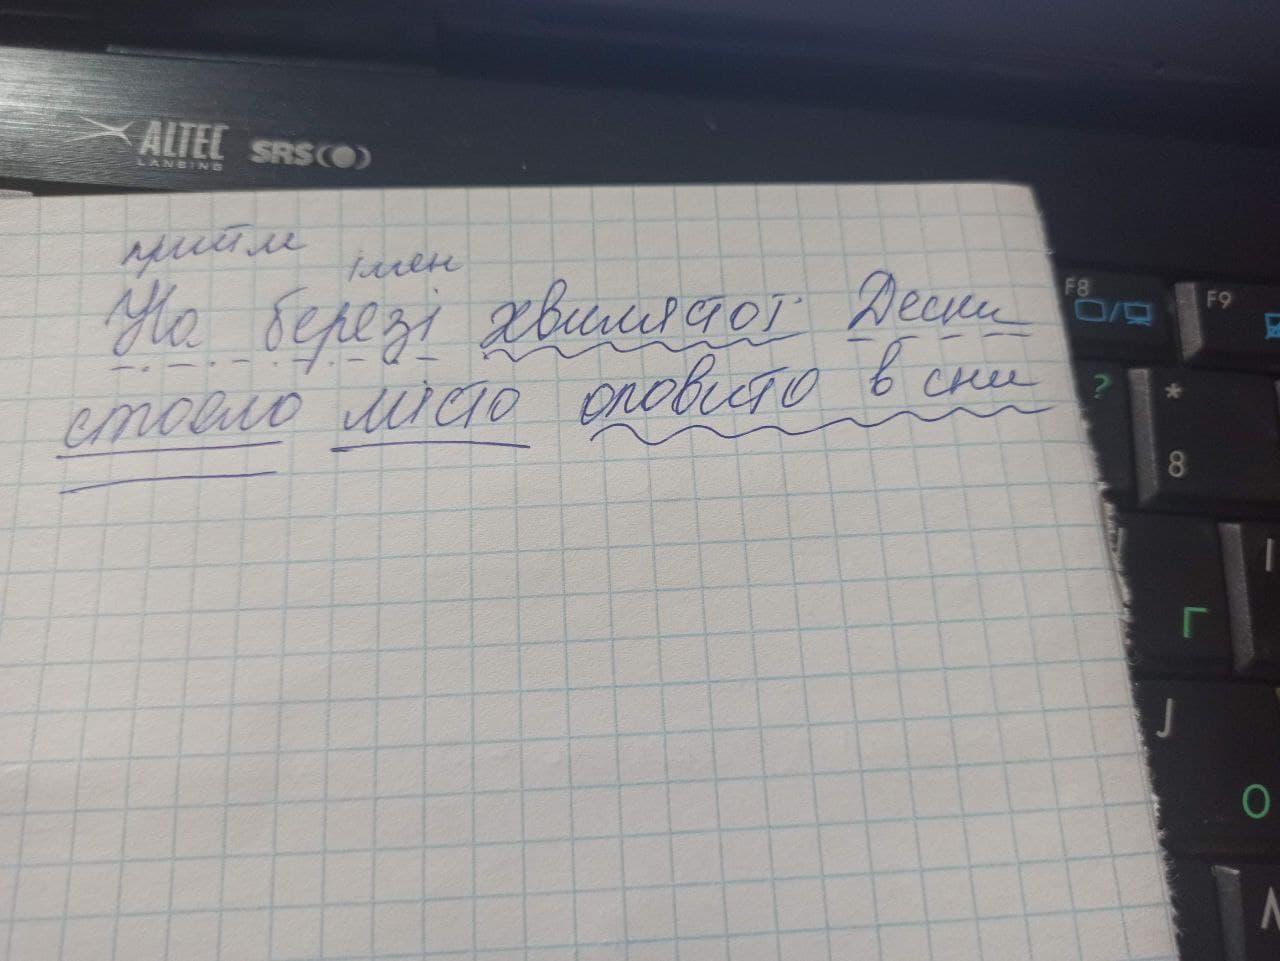 ALTEC
LANSING
SRS
прийм
імен
На березі хвилястої Десни
стояло місто оповито в сни
F8
F9
?
*
8
Г
J
О